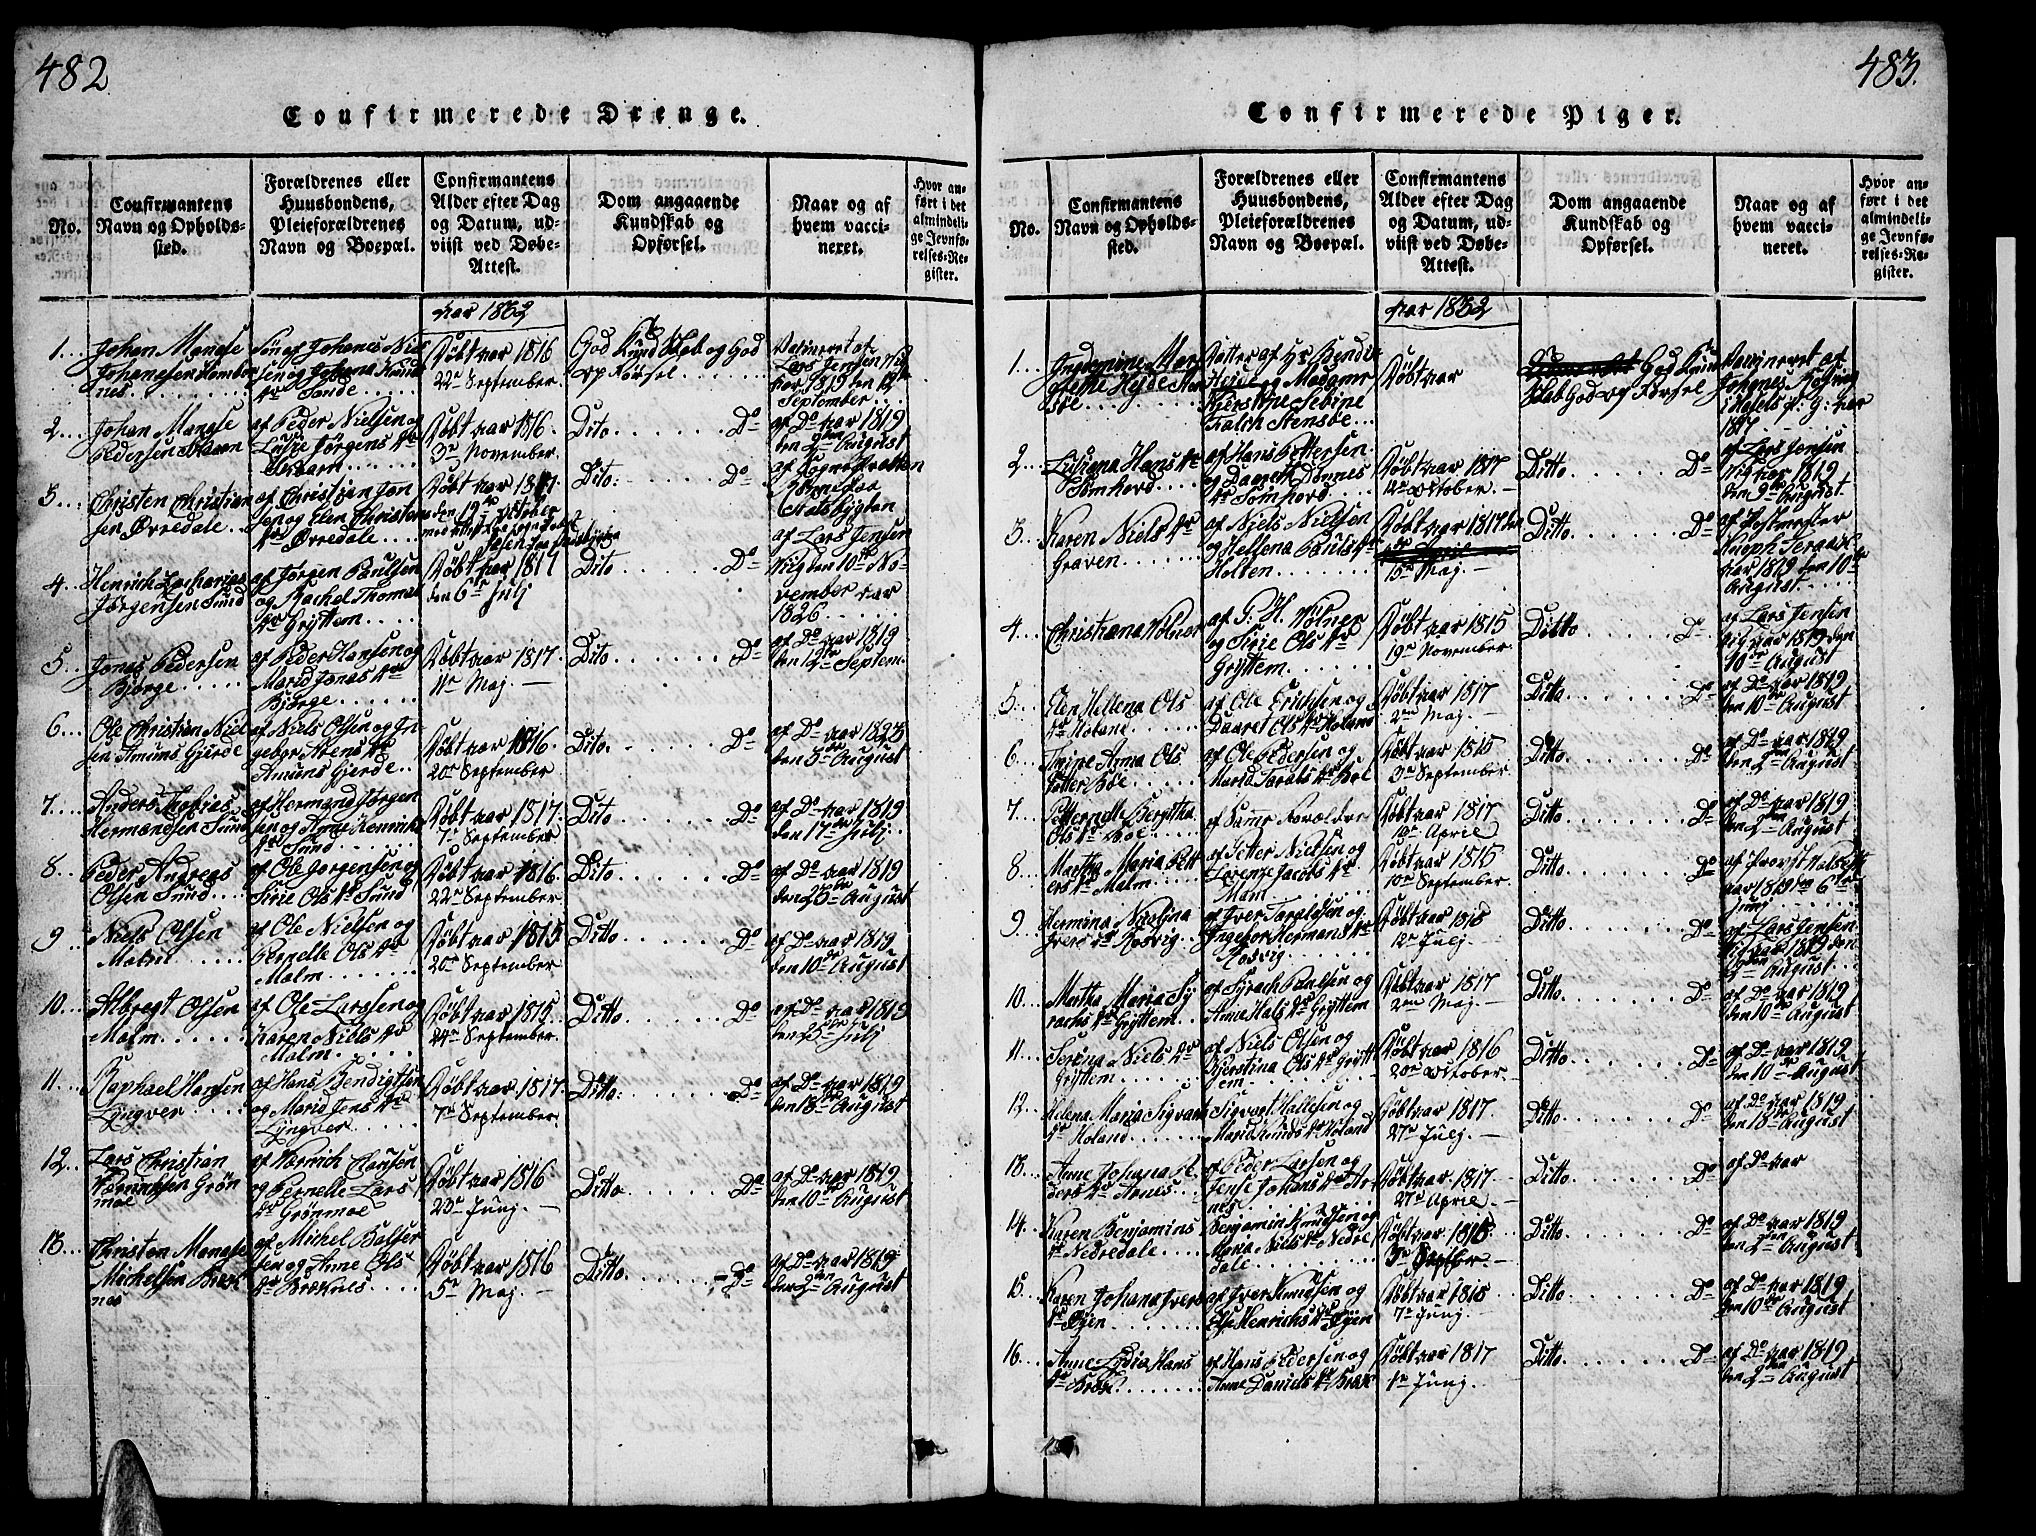 482
Confirmerede Drenge.
No.
Confirmantens
Navn og Opholds-
sted.
Forældrenes eller
Huusbondens,
Pleieforældrenes
Navn og Boepæl.
Confirmantens
Alder efter Dag
og Datum, ud-
viist ved Døbe-
Attest.
Dom angaaende
Kundskab og
Opførsel.
Naar og af
hvem vacci-
neret.
Hvor an-
ført i det
almindeli-
ge Jevnfø-
relses-Re-
gister.
aar 1832
1. Johan Manase
Johanesen
nes
Søn af Johanes Niel
sen og Johana Knuds
dr Sande
Døbt aar 1816
22de September
God Kundskab og God
opførsel
Vacineret af
Lars Jensen Vig
aar 1819 den 12te
September
2. Johan Manase
Pedersen
af Peder Nielsen og
Jørgens dr
Døbt aar 1816.
3de November
Dito Do
af Do aar 1819
den 9den August
3. Christen Christian
sen Ørredale
af Christian Jon
sen og Elen Christens
dr Ørredale
Døbt aar 1817
den 19de October
Dito Do
4. Henrich Zacharias
Jørgensen Sund
af Jørgen Paulsen
og Rachel Thomas
dr Gryttem
Døbt aar 1817
den 6te Julj
Dito Do
af Lars Jensen
Vig den 10de No-
vember aar
1826
5. Jonas Pedersen
Bjørge
af Peder Hansen og
Marid Jonas dr
Bjørge
Døbt aar 1817.
11te Maj
Dito Do
af Do aar 1819
den 12te Septem.
6. Ole Christian Niel
sen Amuns Gjerde
af Niels Olsen og In
gebor Stens dr
Amuns Gjerde
Døbt aar 1816.
20de September
Dito Do
af Do aar 1823
den 5te August
7. Anders Thobias
Hermandsen Sund
af Hermand Jørgen
sen og Ane Henrichs
dr Sund
Døbt aar 1817.
7de September
Dito Do
af Do aar 1819
den 17de Julj
8. Peder Andreas
Olsen Sund
af Ole Jørgensen og
Sirie Ols dr Sund
Døbt aar 1816.
22de September
Dito Do
af Do aar 1819
den 25de August
9. Niels Olsen
Malm
af Ole Nielsen og
Pernelle Ols dr
Malm
Døbt aar 1815
26de September
Ditto Do
af Do aar 1819
den 10de August
10. Albregt Olsen
Malm
af Ole Larssen og
Karen Niels dr
Malm
Døbt aar 1815.
24de September
Ditto Do
af Do aar 1819
den 25de Julj
11. Raphael Hansen
Lyngver
af Hans Bendigtsen
og Marid Jens dr
Lyngver
Døbt aar 1817.
7de September
Ditto Do
af Do aar 1819
den 18de August
12. Lars Christian
Grøn
moe
af Henrich Clausen
og Pernelle Lars
dr Grønmoe
Døbt aar 1816
23de Junj
Ditto Do
af Do aar 1819
den 10de August
13. Christen Manase
Michelsen Brox
nes
af Michel Balser
sen og Anne Ols
dr Broxnes
Døbt aar 1816
5te Maj
Ditto Do
af Do aar 1819
den 9den August
483.
Confirmerede Piger.
No.
Confirmantens
Navn og Opholds-
sted.
Forældrenes eller
Huusbondens,
Pleieforældrenes
Navn og Boepæl.
Confirmantens
Alder efter Dag
og Datum, ud-
viist ved Døbe-
Attest.
Dom angaaende
Kundskab og
Opførsel.
Naar og af
hvem vacci-
neret.
Hvor an-
ført i det
almindeli-
ge Jevnfø-
relses-Re-
gister.
aar 1832
1. Mar
Heide Sten
søe
Datter af Hr Bendix
Heide og Madame
Sebine
Falch Stensøe
Døbt aar
God Kund
skab God opførsel
Vacineret af
Johannes
aar
1817
2. Hans dr
Tomhord
af Hans Pettersen
og Daaret Donnes
dr Tomhord
Døbt aar 1817
12te October
Ditto Do
af Lars Jensen
Vig aar 1819
den 9de August
3. Karen Niels dr
Graven
af Niels Nielsen
og Hellena Pauls dr
Holten
Døbt aar 1817 den
15de Maj
Ditto Do
af Postmester
aar 1819 den 10de
August
4. Christiana Wolner
af G. H. Wolner
og Sirie Ols dr
Gryttem
Døbt aar 1815
19de November
Ditto Do
af Lars Jensen
Vig aar 1819 den
10de August
5. Elen Hellena Ols
dr Holand
af Ole Erichsen og
Daaret Ols dr Holand
Døbt aar 1817
2den Maj
Ditto Do
af Do aar 1819
den 10de August
6. Anna Ols
Datter Bøe
af Ole Pedersen og
Marid dr Bøe
Døbt aar 1815
3de September
Ditto Do
af Do aar 1819
den 2den August
7. Petternelle Bergitha
Ols dr Bøe
af Samme Forældre
Døbt aar 1817
10de April
Ditto Do
af Do aar 1819
den 2den August
8. Martha Maria Pett
ers dr Malm
af Petter Nielsen og
Lorense Jacobs dr
Malm
Døbt aar 1815
10de September
Ditto Do
af Provst
aar 1819 den 6te
Junj
9. Hermina Nicolina
Ivers dr Rosvig
af Iver Taraldsen og
Ingebor Hermans dr
Rosvig
Døbt aar 1815
12te Julj
Ditto Do
af Lars Jensen
Vig aar 1819 den
August
10. Martha Maria Sy
rachs dr Gryttem
af Syrach Paulsen og
Ane Mats dr Gryttem
Døbt aar 1817
2den Maj
Ditto Do
af Do aar 1819
den 10de August
11. Serina Niels dr
Gryttem
af Niels Olsen og
Kjerstina Ols dr Grytt
em
Døbt aar 1816
20de October
Ditto Do
af Do aar 1819
den 10de August
12. Helena Maria Sigvart
dr Holand
Sigvart Hallesen og
Marid Knuds dr Holand
Døbt aar 1817.
27de Julj
Ditto Do
af Do aar 1819
den 18de August
13. Anne Johana Pe
ders dr Arnes
af Peder Larsen og
Jense Johans dr Ar
nes
Døbt aar 1817
27de April
Ditto Do
af Do aar
14. Karen Benjamins
dr Nedredale
Benjamin Knudsen og
Maria Niels dr Nedre
dale
Døbt aar 1815
3de Septbr.
Ditto Do
af Do aar 1819
den 2den August
15. Karen Johana Ivers
dr Øyen
af Iver Knudsen og
Else Henrichs dr Øyen
Døbt aar 1815
7de Junj
Ditto Do
af Do aar 1819
den 10de August
16. Anne Lydia Hans
dr Brøx
af Hans Pedersen og
Anne Daniels dr Brøx
Døbt aar 1817
1te Junj
Ditto Do
af Do aar 1819
den 2den August